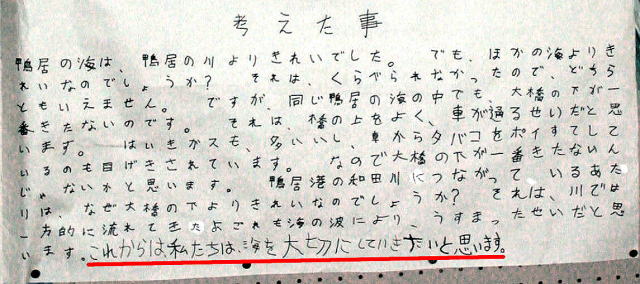 考えた事
鴨居の海は、鴨居の川よりきれいでした。　でも、ほかの海よりき
れいなのでしょうか？　それは、くらべられなかったので、どちら
ともいえません。　ですが、同じ鴨居の海の中でも、大橋の下が一
番きたないのです。　それは、橋の上をよく、車が通るせいだと思
います。　はいきガスも、多いいし、車からタバコをポイすてして
いるのも目げきされています。　なので大橋の下が一番きたないん
じゃないかと思います。　鴨居港の和田川につながっているあた
りは、なぜ大橋の下よりきれいなのでしょうか？　それは、川では
一方的に流れてきたよごれも海の波により、うすまったせいだと思
います。これからは私たちは、海を大切にしていきたいと思います。